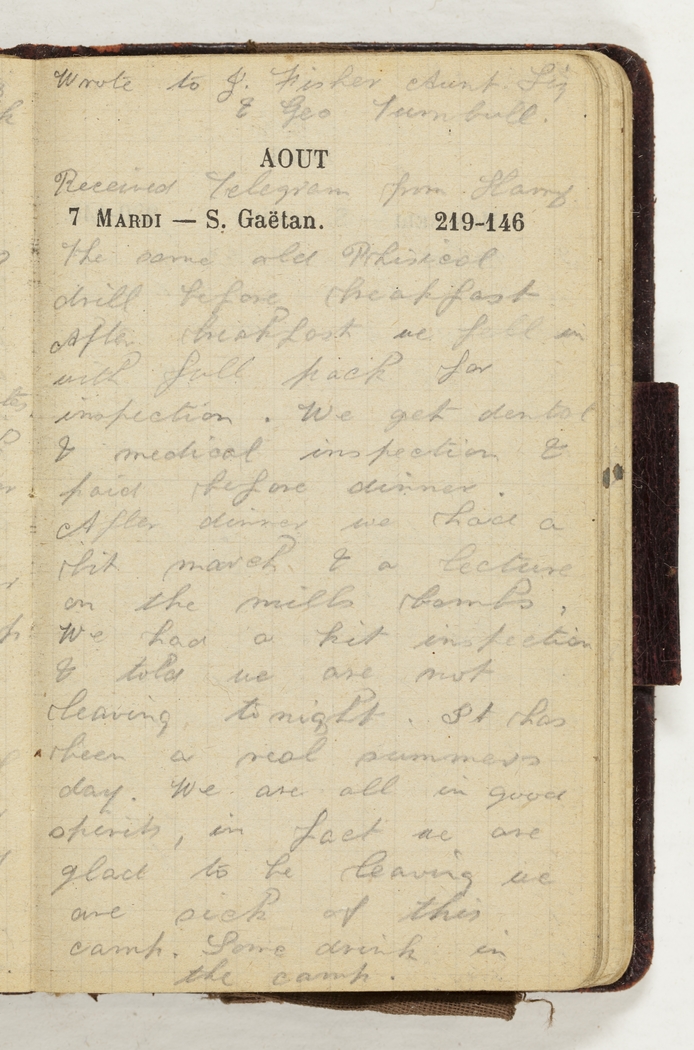 Wrote to J. Fisher Aunt Liz
& Geo Turnbull.
AOUT
Received Telegram from Harry
7 MARDI — S. Gaëtan. 219-146
The same old Phisical
drill before breakfast
After breakfast we fall in
with full pack for
inspection. We get dental
& medical inspection &
paid before dinner.
After dinner we had a
bit march & a lecture
on the mills bombs.
We had a kit inspection
& told we are not
leaving tonight. It has
been a real summers
day. We are all in good
spirits, in fact we are
glad to be leaving we
are sick of this
camp. Some drink in
the camp.